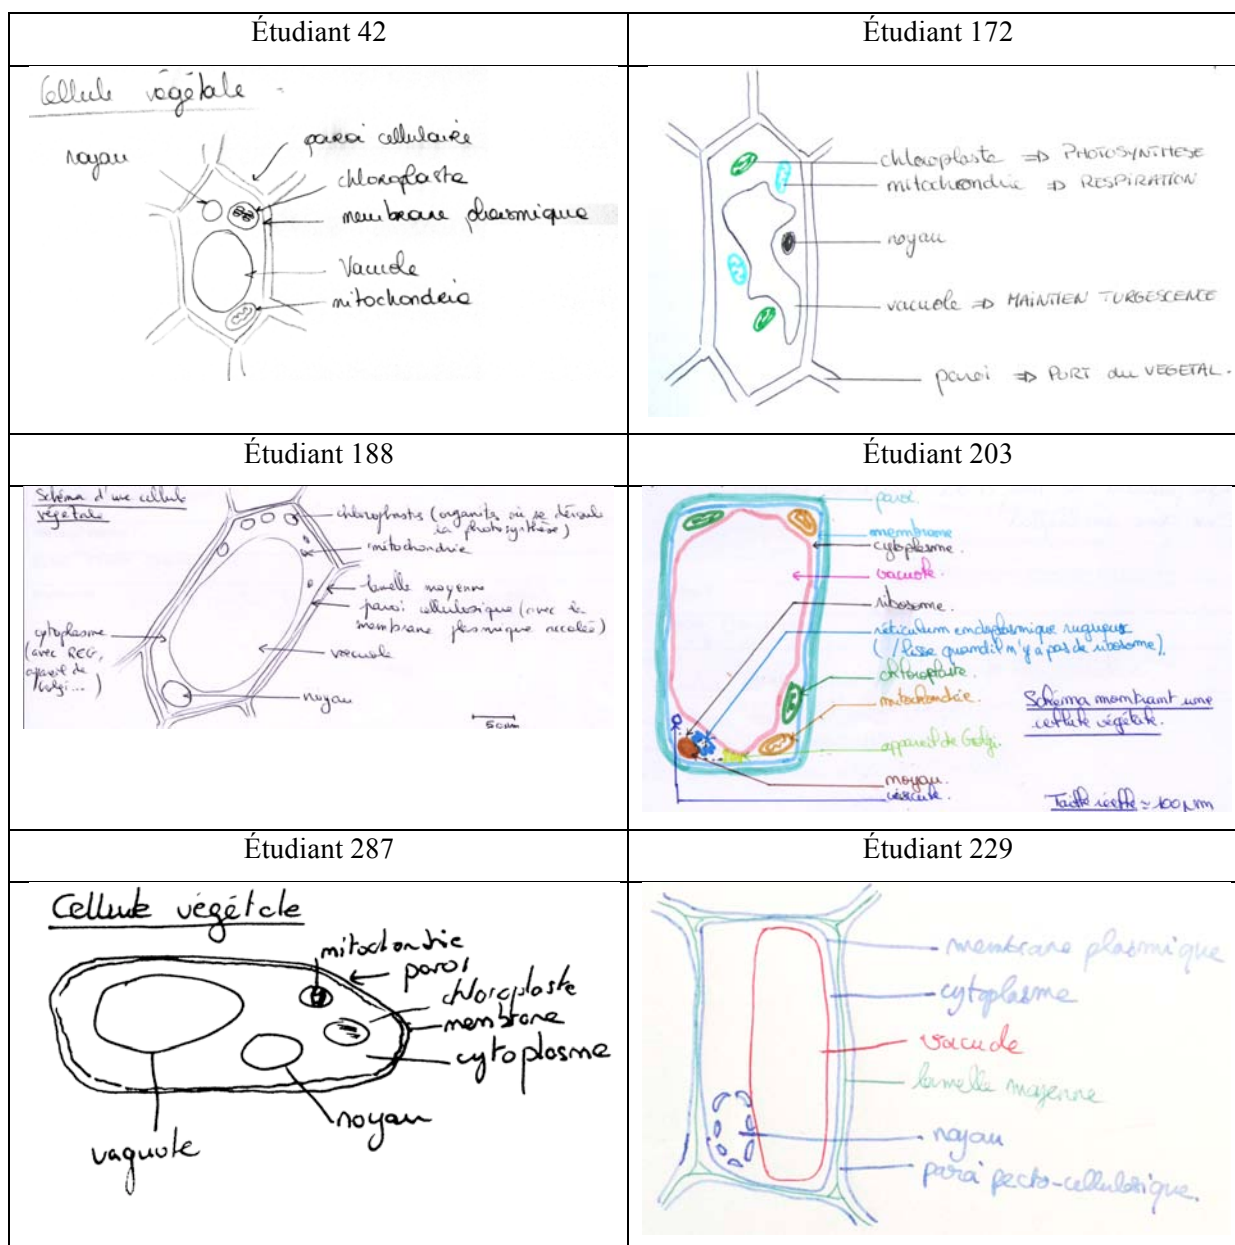 Étudiant 42
Étudiant 172
Cellule végétale
noyau
paroi cellulaire
chloroplaste
membrane plasmique
Vacuole
mitochondrie
chloroplaste ⇒ PHOTOSYNTHESE
mitochondrie ⇒ RESPIRATION
noyau
vacuole ⇒ MAINTIEN TURGESCENCE
paroi ⇒ PORT du VEGETAL.
Étudiant 188
Étudiant 203
Schéma d'une cellule
végétale
chloroplastes (organites où se déroule
la photosynthèse)
mitochondrie
lamelle moyenne
paroi cellulosique (avec la
membrane plasmique accolée)
cytoplasme
(avec REG,
appareil de
Golgi...)
vacuole
noyau
50µm
paroi.
membrane
cytoplasme.
vacuole.
ribosome.
réticulum endoplasmique rugueux
(/lisse quand il n'y a pas de ribosome).
chloroplaste.
mitochondrie.
appareil de Golgi.
noyau.
vésicule.
Schéma montrant une
cellule végétale.
Taille réelle ≈ 100µm
Étudiant 287
Étudiant 229
Cellule végétale
mitochondrie
paroi
chloroplaste
membrane
cytoplasme
noyau
vaquole
membrane plasmique
cytoplasme
vacuole
lamelle moyenne
noyau
paroi pecto-cellulosique.